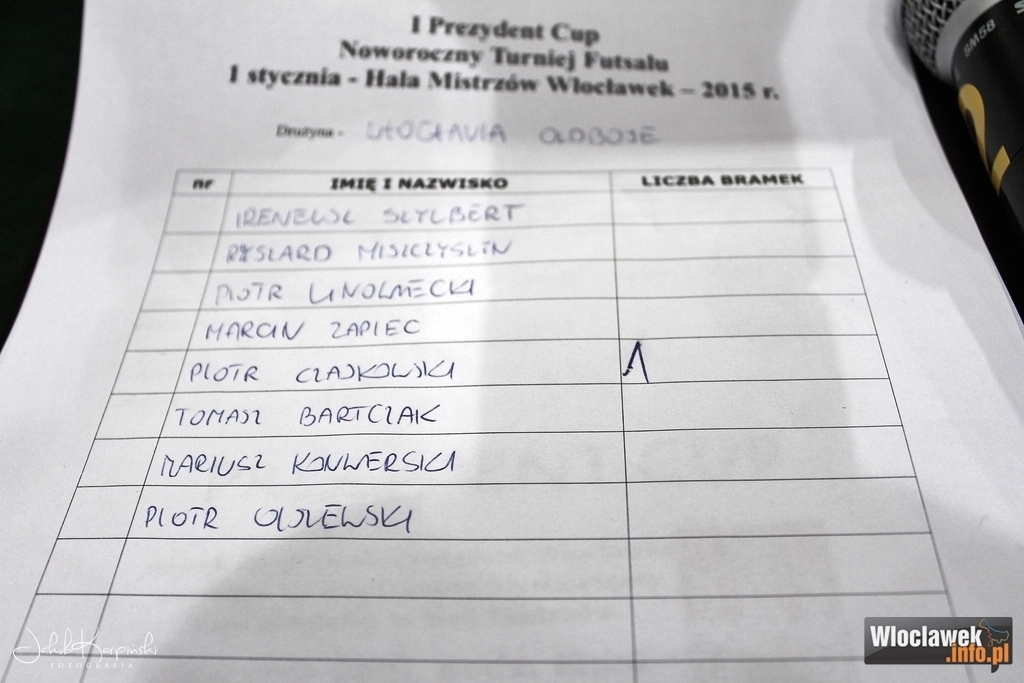 I Prezydent Cup
Noworoczny Turniej Futsalu
1 stycznia - Hala Mistrzów Włocławek – 2015 r.
Drużyna - WŁOCŁAVIA OLDBOJE
nr IMIĘ I NAZWISKO LICZBA BRAMEK
IRENEUSZ SZYLBERT
RYSZARD
PIOTR
MARCIN ZAPIEC
PIOTR CZAJKOWSKI 1
TOMASZ BARTCZAK
MARIUSZ KONWERSKI
PIOTR OLSZEWSKI
SM58
Jakub Karpiński
FOTOGRAFIA
Wloclawek
.info.pl